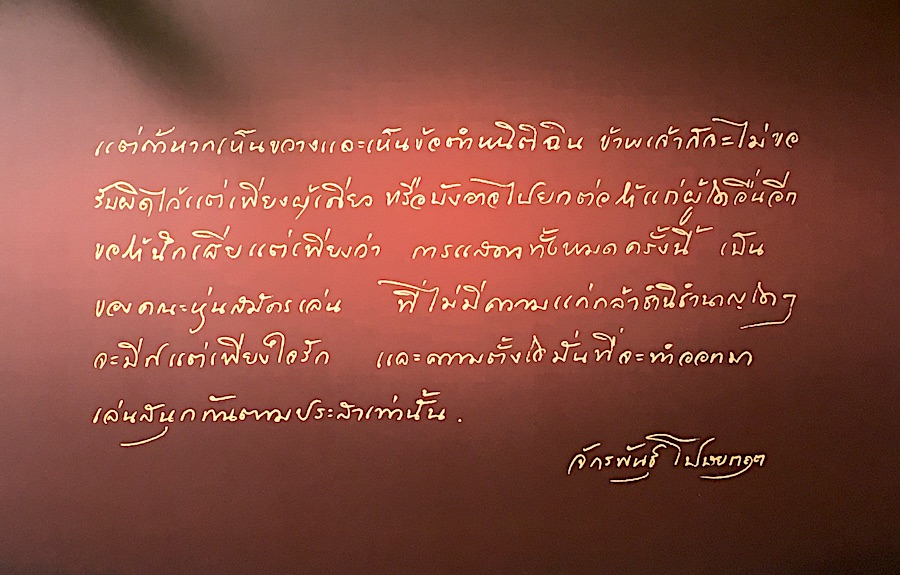 แต่ถ้าหากเห็นขวางและเห็นข้อตำหนิติฉิน ข้าพเจ้าก็จะไม่ขอ
รับผิดไว้แต่เพียงผู้เดียว หรือบังอาจไปยกต่อให้แก่ผู้ใดอื่นอีก
ขอให้นึกเสียแต่เพียงว่า การแสดงทั้งหมดครั้งนี้ เป็น
ของคณะหุ่นสมัครเล่น ที่ไม่มีความแก่กล้าชำนิชำนาญใดๆ
จะมีก็แต่เพียงใจรัก และความตั้งใจมั่นที่จะทำออกมา
เล่นสนุกกันตามประสาเท่านั้น.
จักรพันธุ์ โปษยกฤต